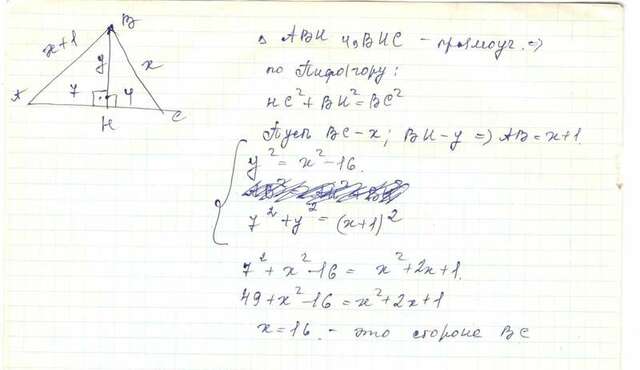 B
x+1
y
x
A
7
4
H
C
Δ ABH и ΔBHC - прямоуг. =>
по Пифагору:
HC²+BH²=BC²
Пусть BC-x; BH-y => AB=x+1.
y²=x²-16.
7²+y²=(x+1)²
7²+x²-16= x²+2x+1.
49+x²-16=x²+2x+1
x=16. - это сторона BC